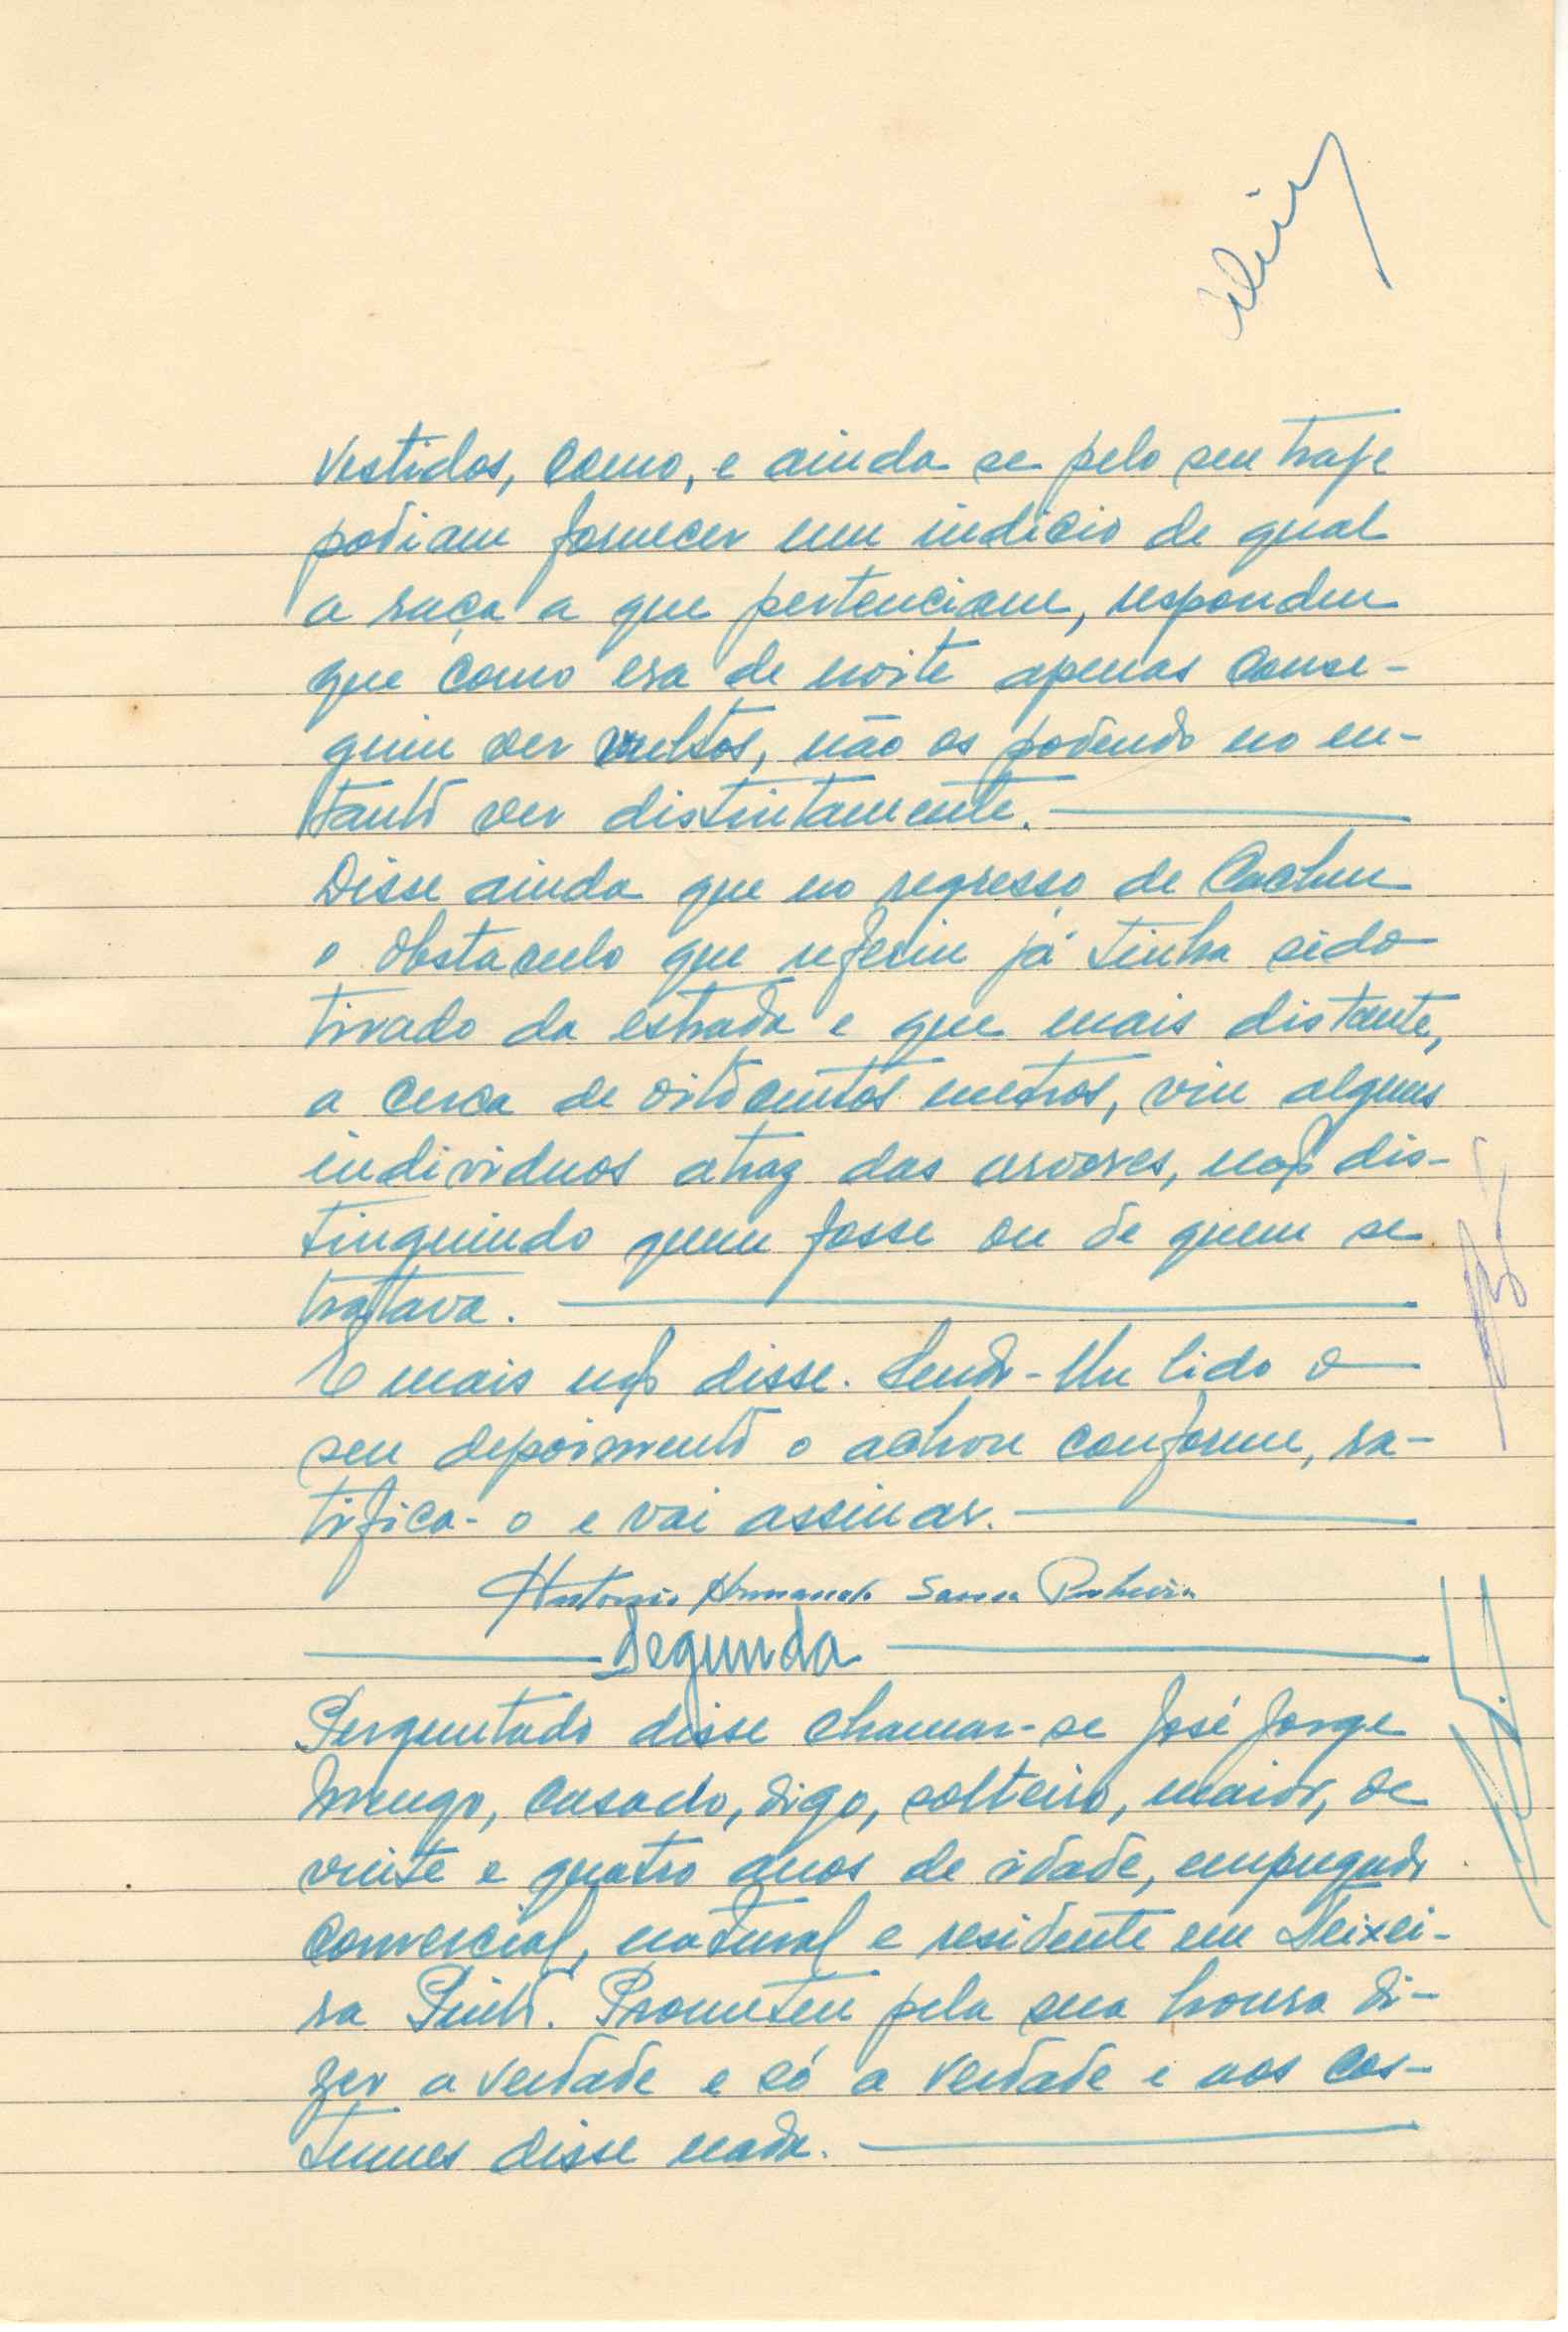 vestidos, como, e ainda se pelo seu traje
podiam fornecer um indicio de qual
a raça a que pertenciam, respondeu
que como era de noite apenas conse-
guiu ver vultos, não os podendo no en-
tanto ver distintamente.
Disse ainda que no regresso de Cacheu
o obstaculo que referiu já tinha sido
tirado da estrada e que mais distante,
a cerca de oitocentos metros, viu alguns
individuos atraz das arvores, não dis-
tinguindo quem fosse ou de quem se
tratava.
E mais não disse. Sendo-lhe lido o
seu depoimento o achou conforme, ra-
tifica-o e vai assinar.
Antonio Armando
Segunda
Perguntado disse chamar-se José Jorge
casado, digo, solteiro, maior, de
vinte e quatro anos de idade, empregado
comercial, natural e residente em Teixei-
ra Pinto. Prometeu pela sua honra di-
zer a verdade e só a verdade e aos cos-
tumes disse nada.